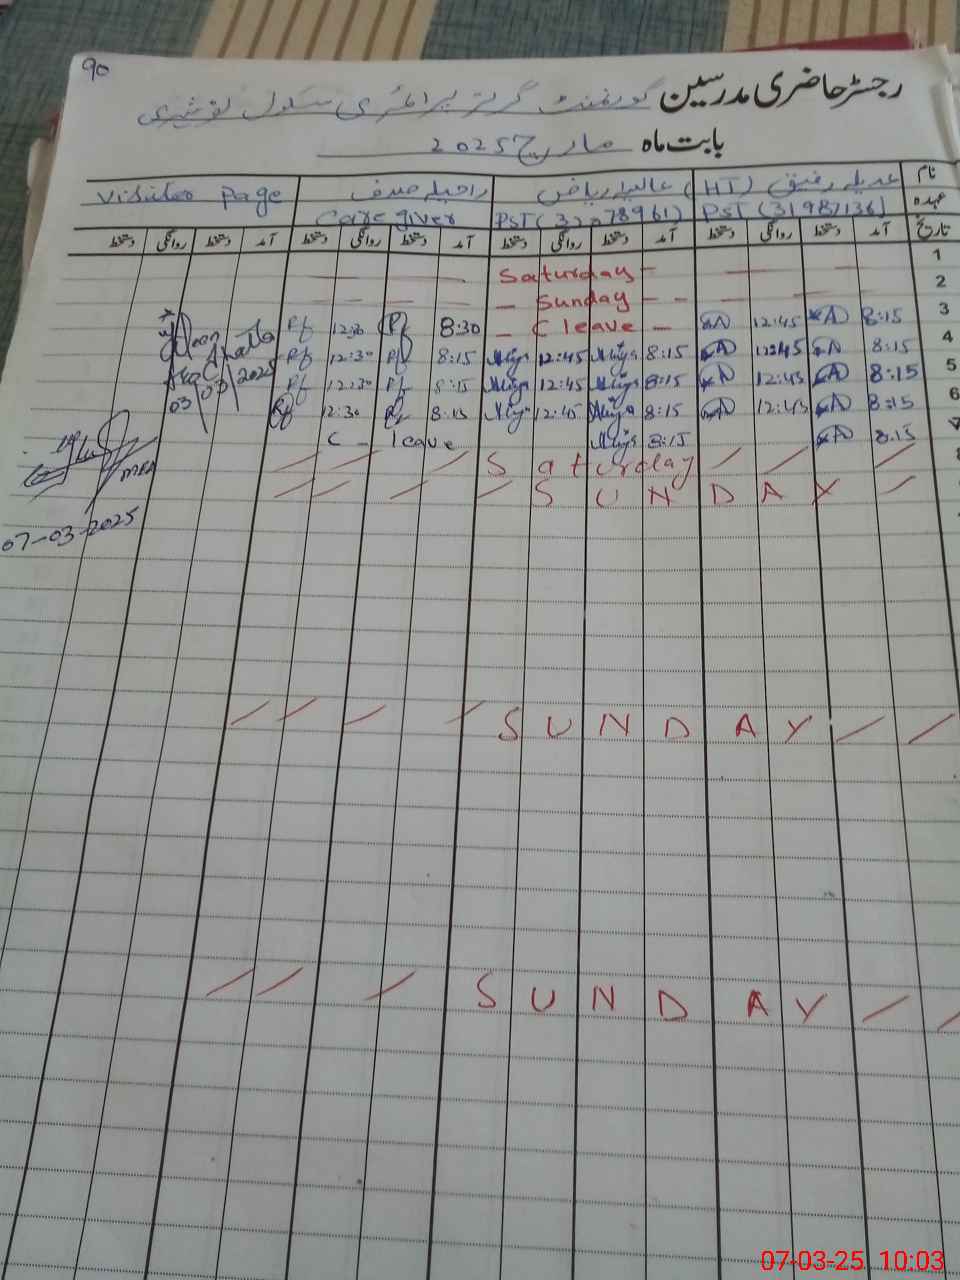 90
رجسٹر حاضری مدرسین گورنمنٹ گرلز پرائمری سکول نوشہری
بابت ماہ مارچ 2025
نام عدیلہ رفیق (HT) عالیہ ریاض راحیلہ صدف Visitor Page
عہدہ PST (31987136) PST (32078961) Care giver
تاریخ آمد دستخط روانگی دستخط آمد دستخط روانگی دستخط آمد دستخط روانگی دستخط آمد دستخط روانگی دستخط
1 — — Saturday — — —
2 — — — Sunday — —
3 8:15 12:45 — C leave — 8:30 12:30
4 8:15 12:45 8:15 12:45 8:15 12:30
5 8:15 12:45 8:15 12:45 8:15 12:30
6 8:15 12:45 8:15 12:45 8:15 12:30
7 8:15 8:15 C - leave
8 Saturday
SUNDAY
03/03/2025
MEA
07-03-2025
SUNDAY
SUNDAY
07-03-25 10:03